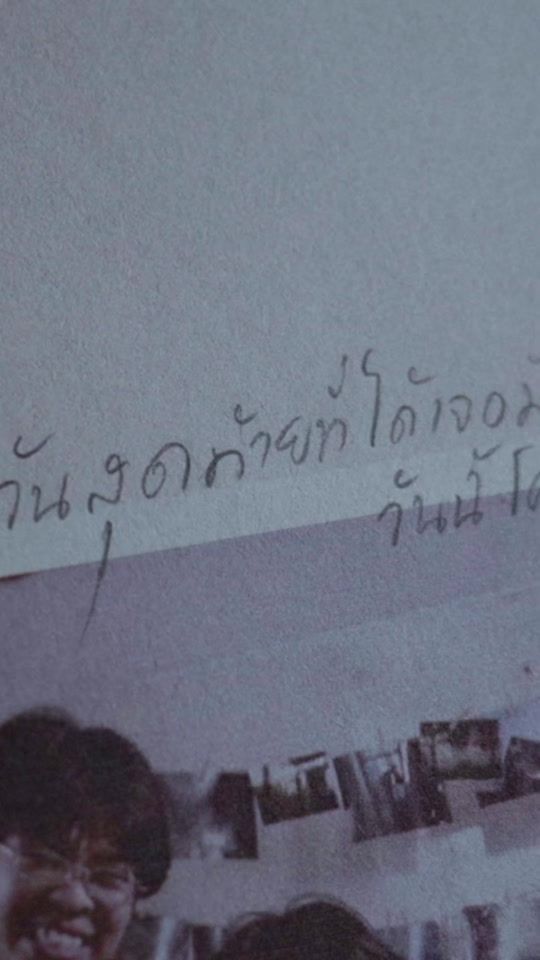 วันสุดท้ายที่ได้เจอ
วันนี้